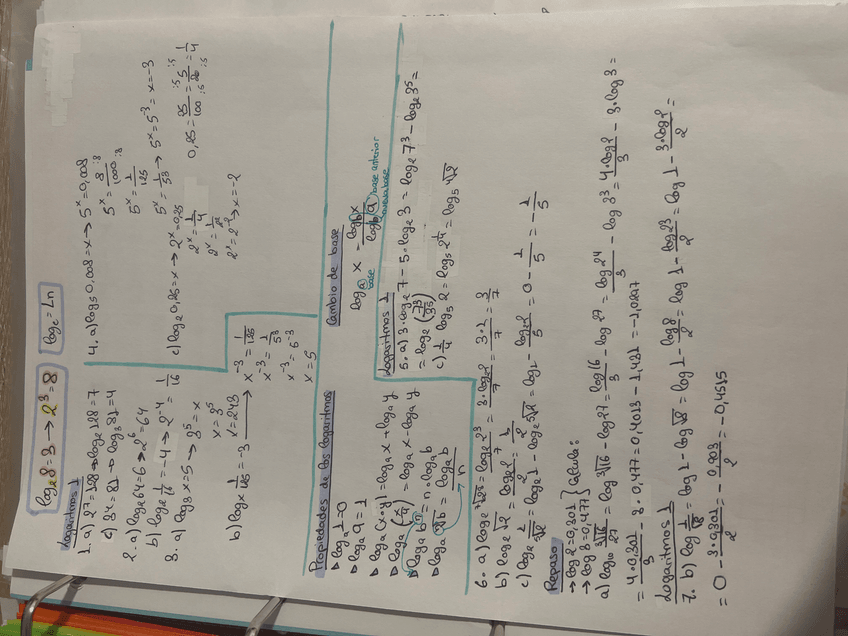 log₂8=3 → 2³=8
logₑ = Ln
Logaritmos 1
1. a) 2⁷=128 → log₂128=7
c) 3⁴=81 → log₃81=4
2. a) log₂64=6 → 2⁶=64
b) log₂ 1/16 = -4 → 2⁻⁴ = 1/16
3. a) log₃x=5 → 3⁵=x
x=3⁵
x=243
b) logₓ 1/125 = -3 → x⁻³ = 1/125
x⁻³ = 1/5³
x⁻³ = 5⁻³
x=5
4. a) log₅0,008=x → 5ˣ=0,008
5ˣ = 8/1000 :8 :8
5ˣ = 1/125
5ˣ = 1/5³ → 5ˣ=5⁻³ = x=-3
c) log₂0,25=x → 2ˣ=0,25
2ˣ = 1/4
2ˣ = 1/2²
2ˣ=2⁻² → x=-2
0,25 = 25/100 :5 :5 = 5/20 :5 :5 = 1/4
Propiedades de los logaritmos
▷ logₐ1=0
▷ logₐa=1
▷ logₐ(x·y)=logₐx+logₐy
▷ logₐ(x/y) = logₐx-logₐy
▷ logₐbⁿ=n·logₐb
▷ logₐⁿ√b = logₐb/n
Cambio de base
logₐ x = log_b x / log_b a
base
base anterior
nueva base
Logaritmos 1
5. a) 3·log₂7-5·log₂3 = log₂7³-log₂3⁵=
= log₂(7³/3⁵)
c) 1/4 log₅2 = log₅2^(1/4) = log₅⁴√2
6. a) log₂⁷√2³ = log₂2³/7 = 3·log₂2/7 = 3·1/7 = 3/7
b) log₂√2 = log₂2/2 = 1/2
c) log₂ 1/⁵√2 = log₂1-log₂⁵√2 = log₂1 - log₂2/5 = 0 - 1/5 = -1/5
Repaso
→ log2=0,301
→ log3=0,477 } Calcula:
a) log₁₀ ³√16/27 = log³√16 - log27 = log16/3 - log27 = log2⁴/3 - log3³ = 4·log2/3 - 3·log3 =
= 4·0,301/3 - 3·0,477 = 0,4013-1,431 = -1,0297
Logaritmos 1
7. b) log 1/√8 = log1-log√8 = log1 - log8/2 = log1 - log2³/2 = log1 - 3·log2/2 =
= 0 - 3·0,301/2 = - 0,903/2 = -0,4515